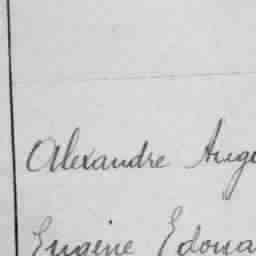 Alexandre Auge
Eugène Edoua